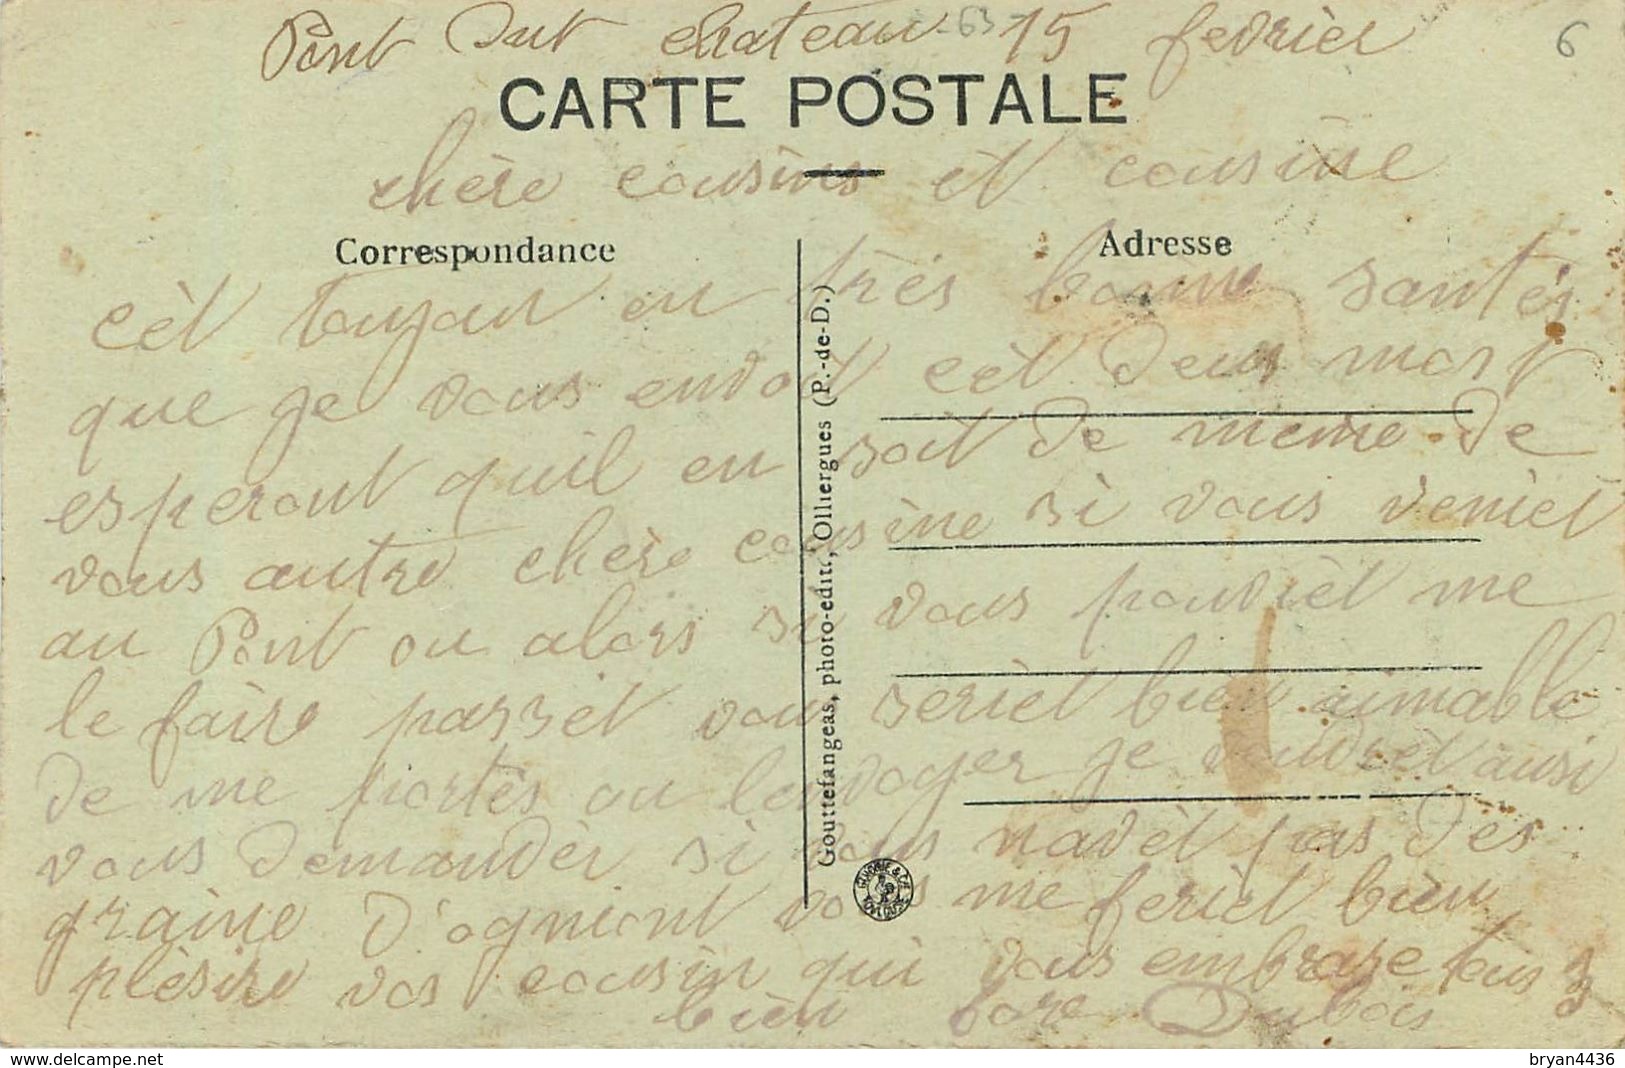 Pont Dut chateau-63 15 fevrièr 6
CARTE POSTALE
chère cousins èt cousine
Correspondance
Adresse
cèt toujour en très bonne santés
que je vous envoit cèt deus mort
esperont quil en soit de meme de
vous autre chère cousine si vous venièt
au Pont ou alors si vous pouvrièt me
le faire passèt vous serièt bien aimable
de me portès ou lenvoyer je voudrèt ausi
vous demandèr si vous navèt pas des
graine d'ogniont vous me ferièt bièn
plèsire vos cousin qui vous embrase tous 3
bièn fore Dubois
Gouttefangeas, photo-édit., Olliergues (P.-de-D.)
bryan4436